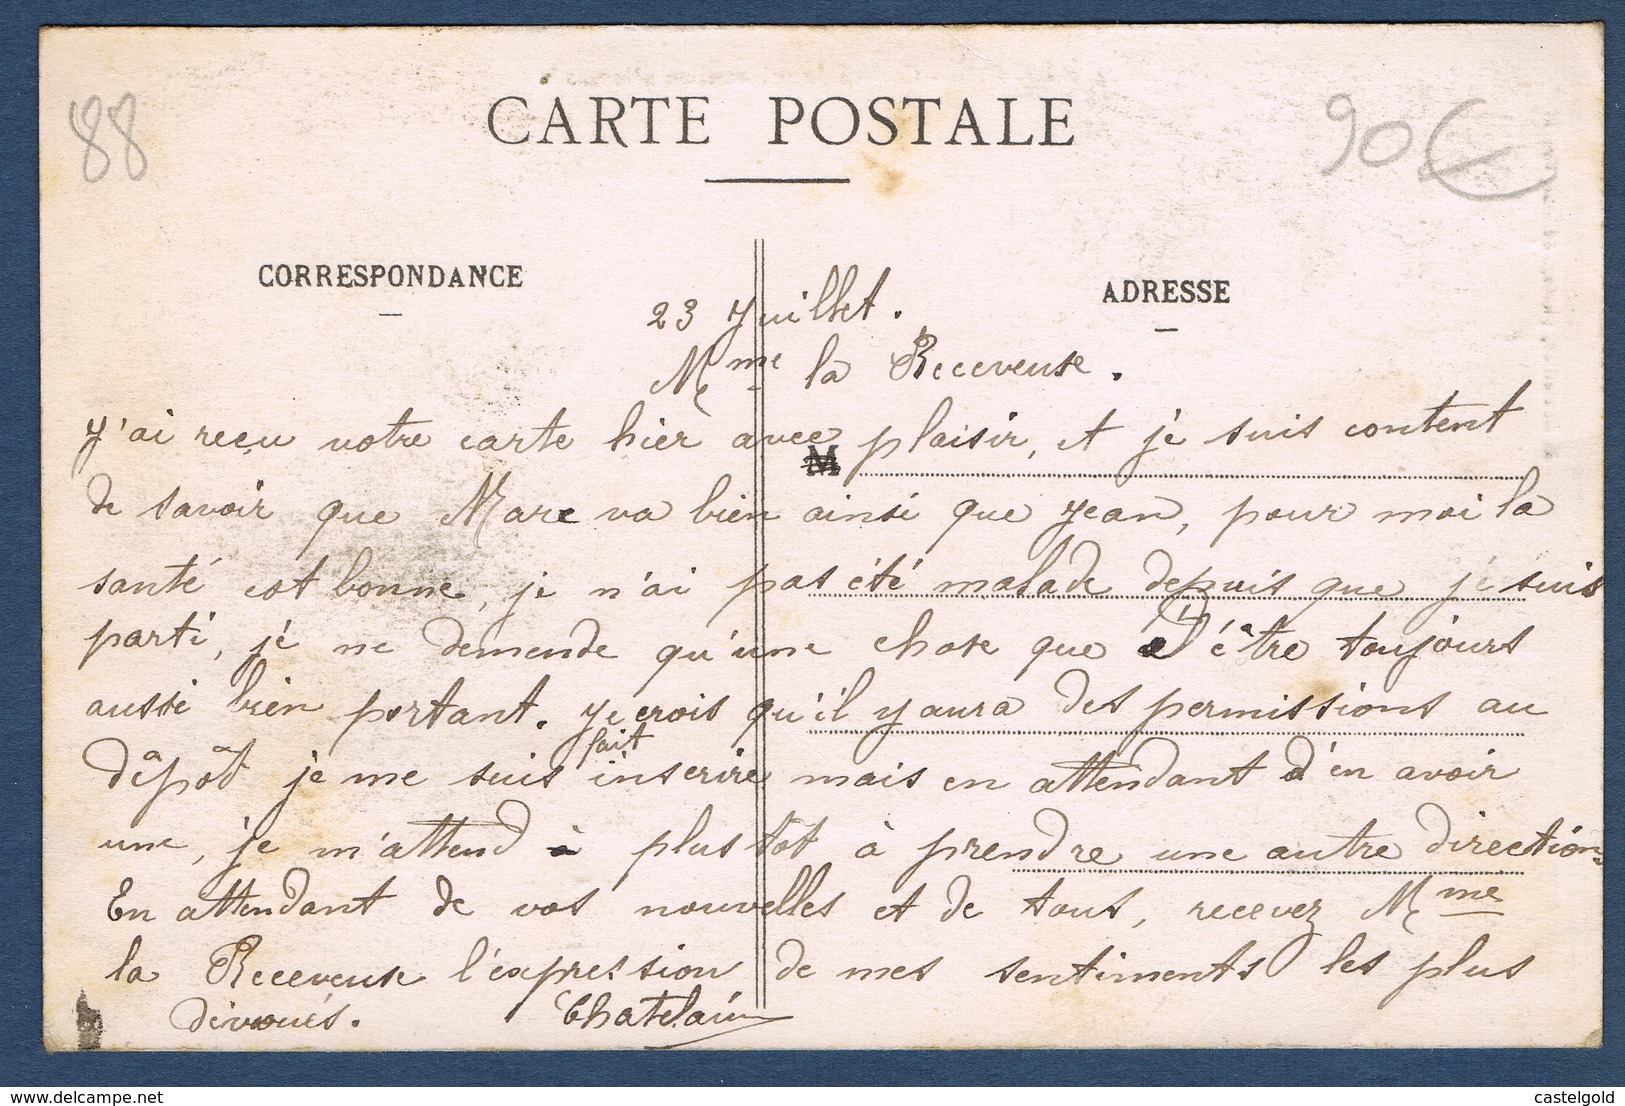 88
90€
CARTE POSTALE
CORRESPONDANCE
ADRESSE
23 Juillet.
Mme la Receveuse.
J'ai reçu votre carte hier avec plaisir, et je suis content
M
de savoir que Marc va bien ainsi que Jean, pour moi la
santé est bonne, je n'ai pas été malade depuis que je suis
parti, je ne demende qu'une chose que d'être toujours
aussi bien portant. Je crois qu'il y aura des permissions au
dêpôt je me suis fait inscrire mais en attendant d'en avoir
une, je m'attend à plus tôt à prendre une autre direction.
En attendant de vos nouvelles et de tous, recevez Mme
la Receveuse l'expression de mes sentiments les plus
divoués. Chatelain
castelgold